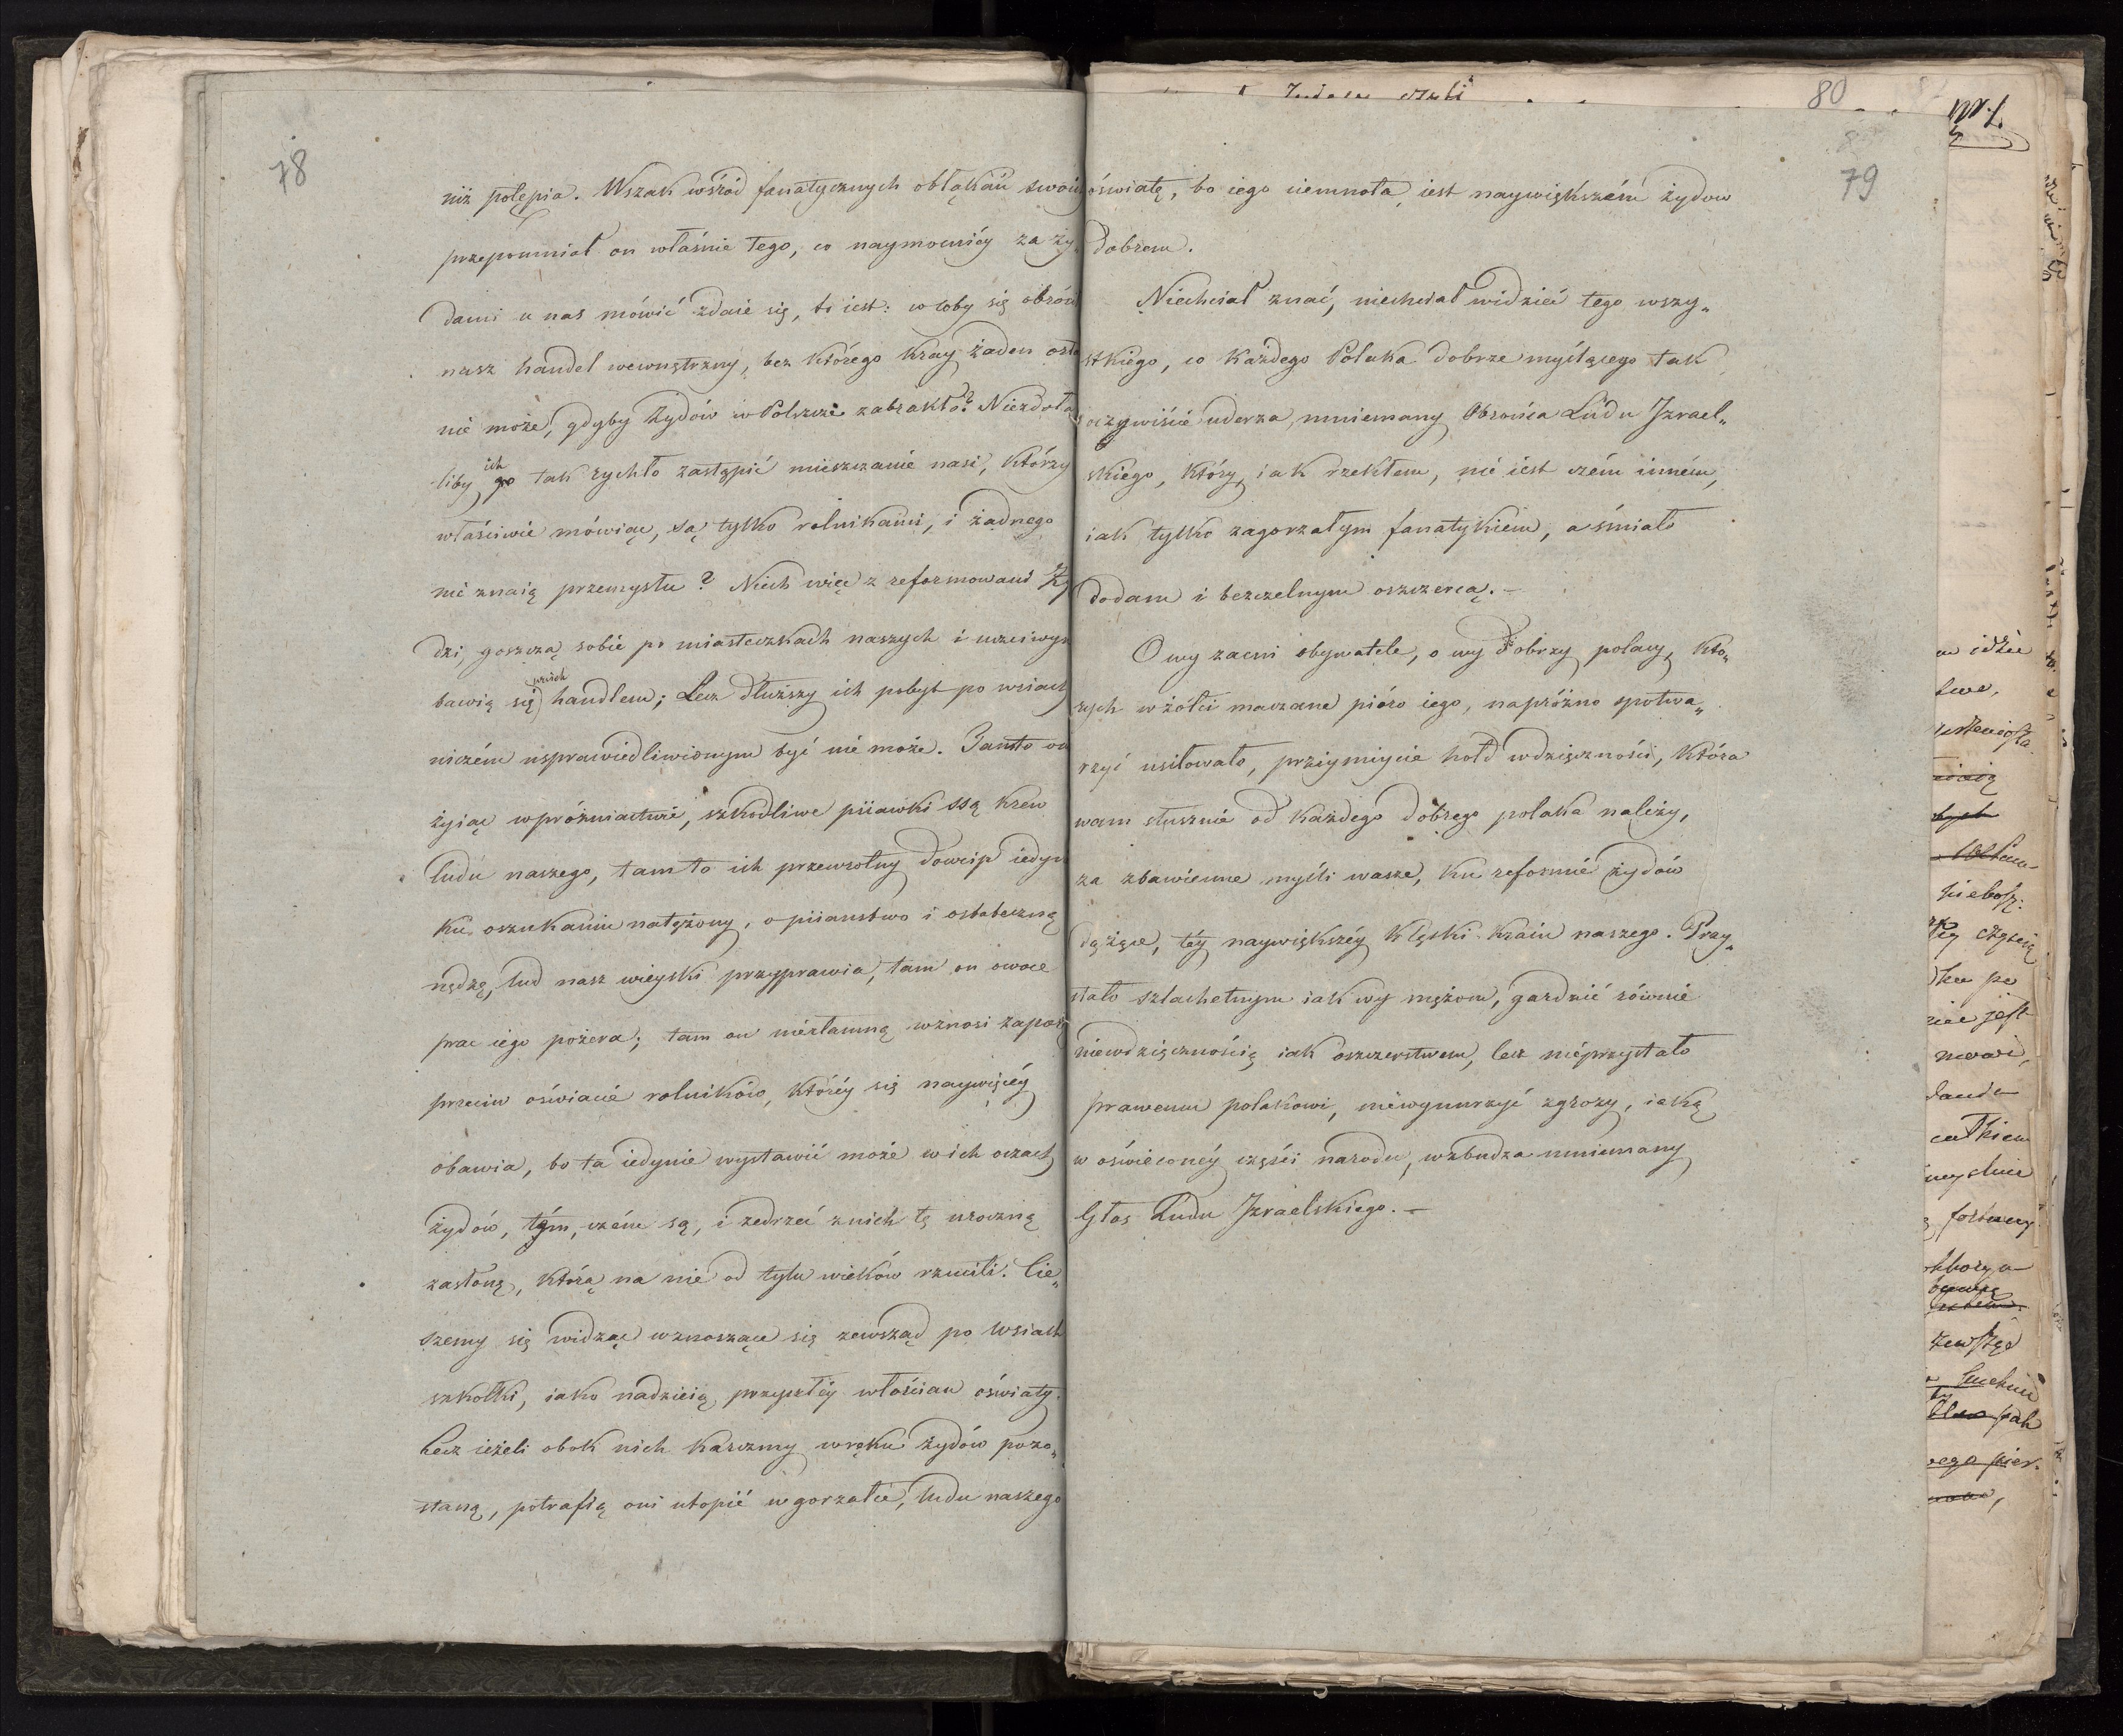 78
niż potępia. Wszak wśród fanatycznych obłąkań swoic
przepomniał on właśnie tego, co naymocniéy za ży„
dami u nas mówić zdaie się, to iest: w coby się obróc
nasz handel wewnętrzny, bez którego kray żaden osta
nie może, gdyby Żydów w Polszcze zabrakło? Niezdoła
liby ich go tak rychło zastąpić mieszczanie nasi, którzy
właściwie mówiąc, są tylko rolnikami, i żadnego
nie znaią przemysłu? Niech więc zreformowani Ży
dzi, goszczą sobie po miasteczkach naszych i uczciwym
bawią się niech handlem; Lecz dłuższy ich pobyt po wsiach
niczém usprawiedliwionym być nie może. Tamto on
żyiąc w próżniactwie, szkodliwe piiawki ssą krew
ludu naszego, tam to ich przewrotny dowcip iedyn
ku oszukaniu natężony, o piianstwo i ostateczną
nędzę, lud nasz wieyski przyprawia, tam on owoce
prac iego pożera; tam on niezłamną wznosi zaporę
przeciw oświacie rolników, któréy się naywięcéy
obawia, bo ta iedynie wystawić może w ich oczach
żydów, tým, czém są, i zedrzeć z nich tę uroczną
zasłonę, którą na nie od tylu wieków rzucili. Cie„
szemy się widząc wznoszące się zewsząd po wsiach
szkołki, iako nadzieią przyszłéy włościan oświaty.
Lecz ieżeli obok nich karczmy w ręku żydów pozo„
staną, potrafią oni utopić w gorzałce, ludu naszego
80
79
oświatę, bo iego ciemnota, iest naywiększém żydow
dobrem.
Niechciał znać, niechciał widzieć tego wszy„
stkiego, co każdego Polaka dobrze myślącego tak
oczywiście uderza, mniemany Obrońca Ludu Izrael„
skiego, który, iak rzekłem, nie iest czém inném,
iak tylko zagorzałym fanatykiem, a śmiało
dodam i bezczelnym oszczercą. —
O wy zacni obywatele, o wy dobrzy polacy, któ„
rych w żółci maczane pióro iego, napróżno spotwa„
rzyć usiłowało, przyimiycie hołd wdzięczności, która
wam słusznie od każdego dobrego polaka należy,
za zbawienne myśli wasze, ku reformie żydów
dążące, téy naywiększéy klęski kraiu naszego. Przy„
stało szlachetnym iak wy mężom, gardzić równie
niewdzięcznością iak oszczerstwem, lecz nieprzystało
prawemu polakowi, niewynurzyć zgrozy, iaką
w oświeconéy części narodu, wzbudza mniemany
Głos Ludu Izraelskiego. —